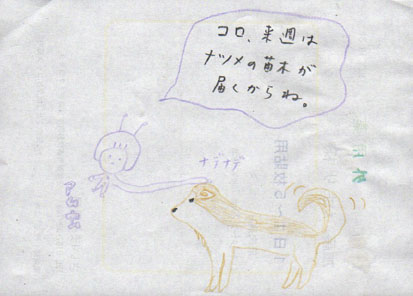 コロ、来週は
ナツメの苗木が
届くからね。
ナデナデ